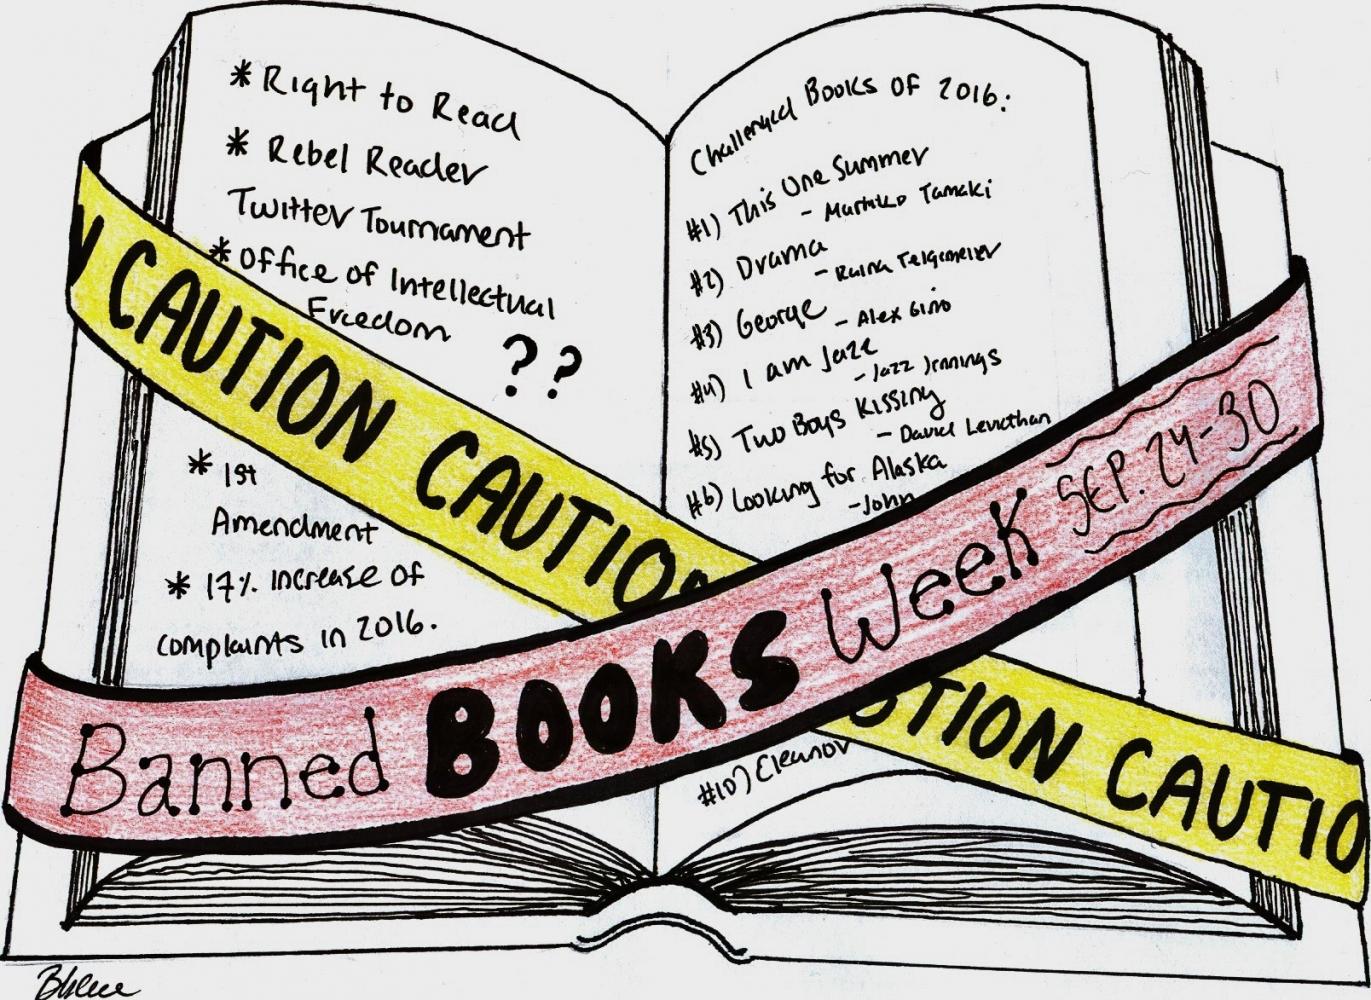 * Right to Read
* Rebel Reader
Twitter Tournament
* Office of Intellectual
Freedom
??
* 1st
Amendment
* 17% increase of
complaints in 2016.
Challenged Books of 2016:
#1) This One Summer
- Mariko Tamaki
#2) Drama
- Raina Telgemeier
#3) George
- Alex Gino
#4) I am Jazz
- Jazz Jennings
#5) Two Boys Kissing
- David Levithan
#6) Looking for Alaska
- John
#10) Eleanor
N CAUTION CAUTION
UTION CAUTIO
Banned BOOKS Week SEP. 24-30